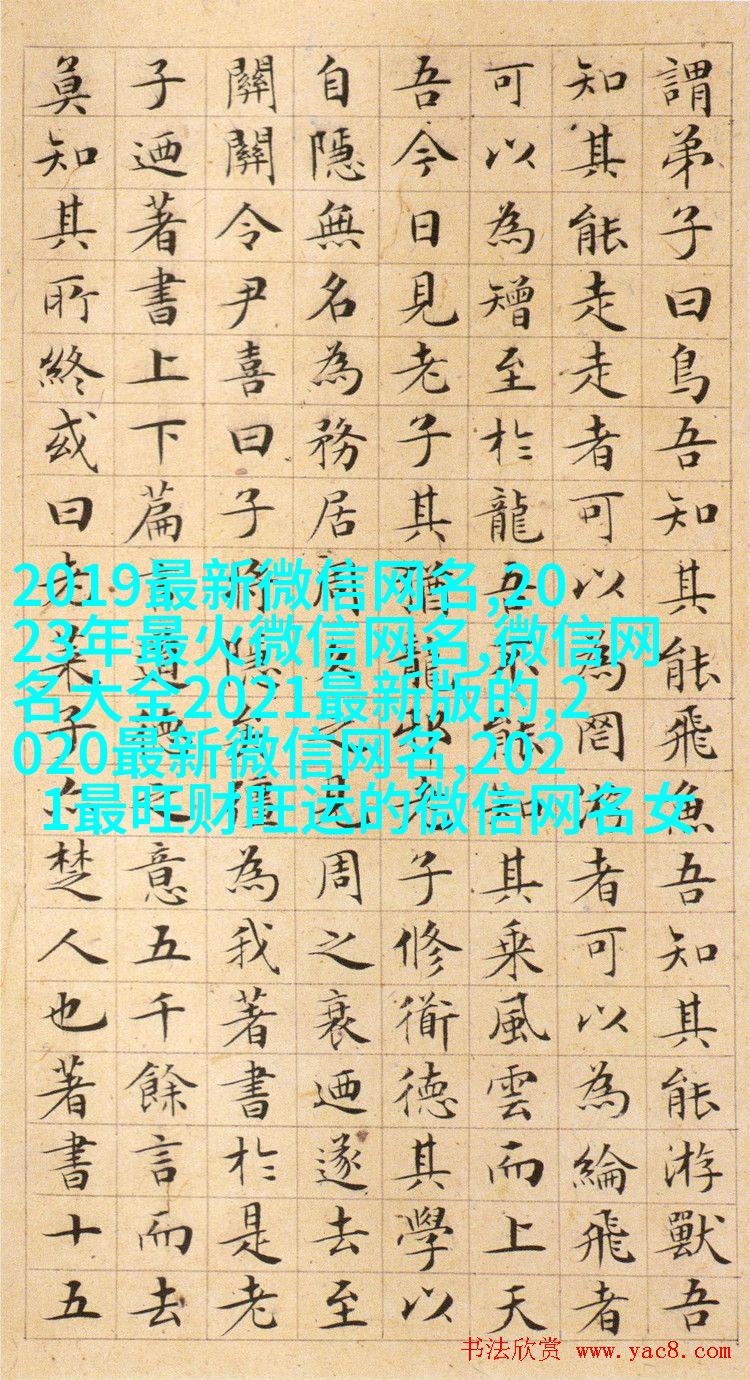 謂弟子曰鳥吾知其能飛魚吾知其能游獸吾
知其能走走者可以為罔游者可以為綸飛者
可以為矰至於龍吾不能知其乘風雲而上天
吾今日見老子其猶龍邪老子修衜德其學以
自隱無名為務居周久之見周之衰迺遂去至
關關令尹喜曰子將隱矣彊為我著書於是老
子迺著書上下篇言道德之意五千餘言而去
莫知其所終或曰老萊子亦楚人也著書十五
2019最新微信网名,20
23年最火微信网名,微信网
名大全2021最新版的,2
020最新微信网名,202
1最旺财旺运的微信网名女
书法欣赏 www.yac8.com